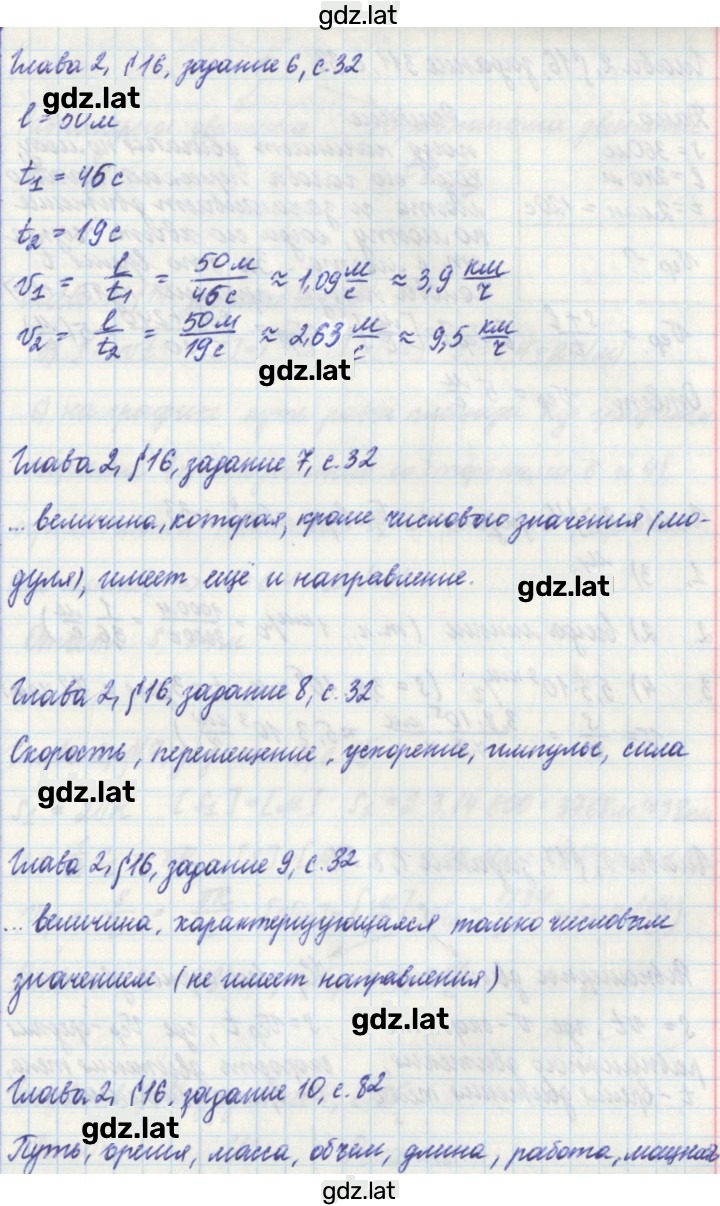 gdz.lat
Глава 2, §16, задание 6, с. 32
gdz.lat
l = 50 м
t₁ = 46 с
t₂ = 19 с
v₁ = l/t₁ = 50 м/46 с ≈ 1,09 м/с ≈ 3,9 км/ч
v₂ = l/t₂ = 50 м/19 с ≈ 2,63 м/с ≈ 9,5 км/ч
gdz.lat
Глава 2, §16, задание 7, с. 32
... величина, которая, кроме числового значения (мо-
дуля), имеет ещё и направление.
gdz.lat
Глава 2, §16, задание 8, с. 32
Скорость, перемещение, ускорение, импульс, сила
gdz.lat
Глава 2, §16, задание 9, с. 32
... величина, характеризующаяся только числовым
значением (не имеет направления)
gdz.lat
Глава 2, §16, задание 10, с. 32
gdz.lat
Путь, время, масса, объем, длина, работа, мощност
gdz.lat